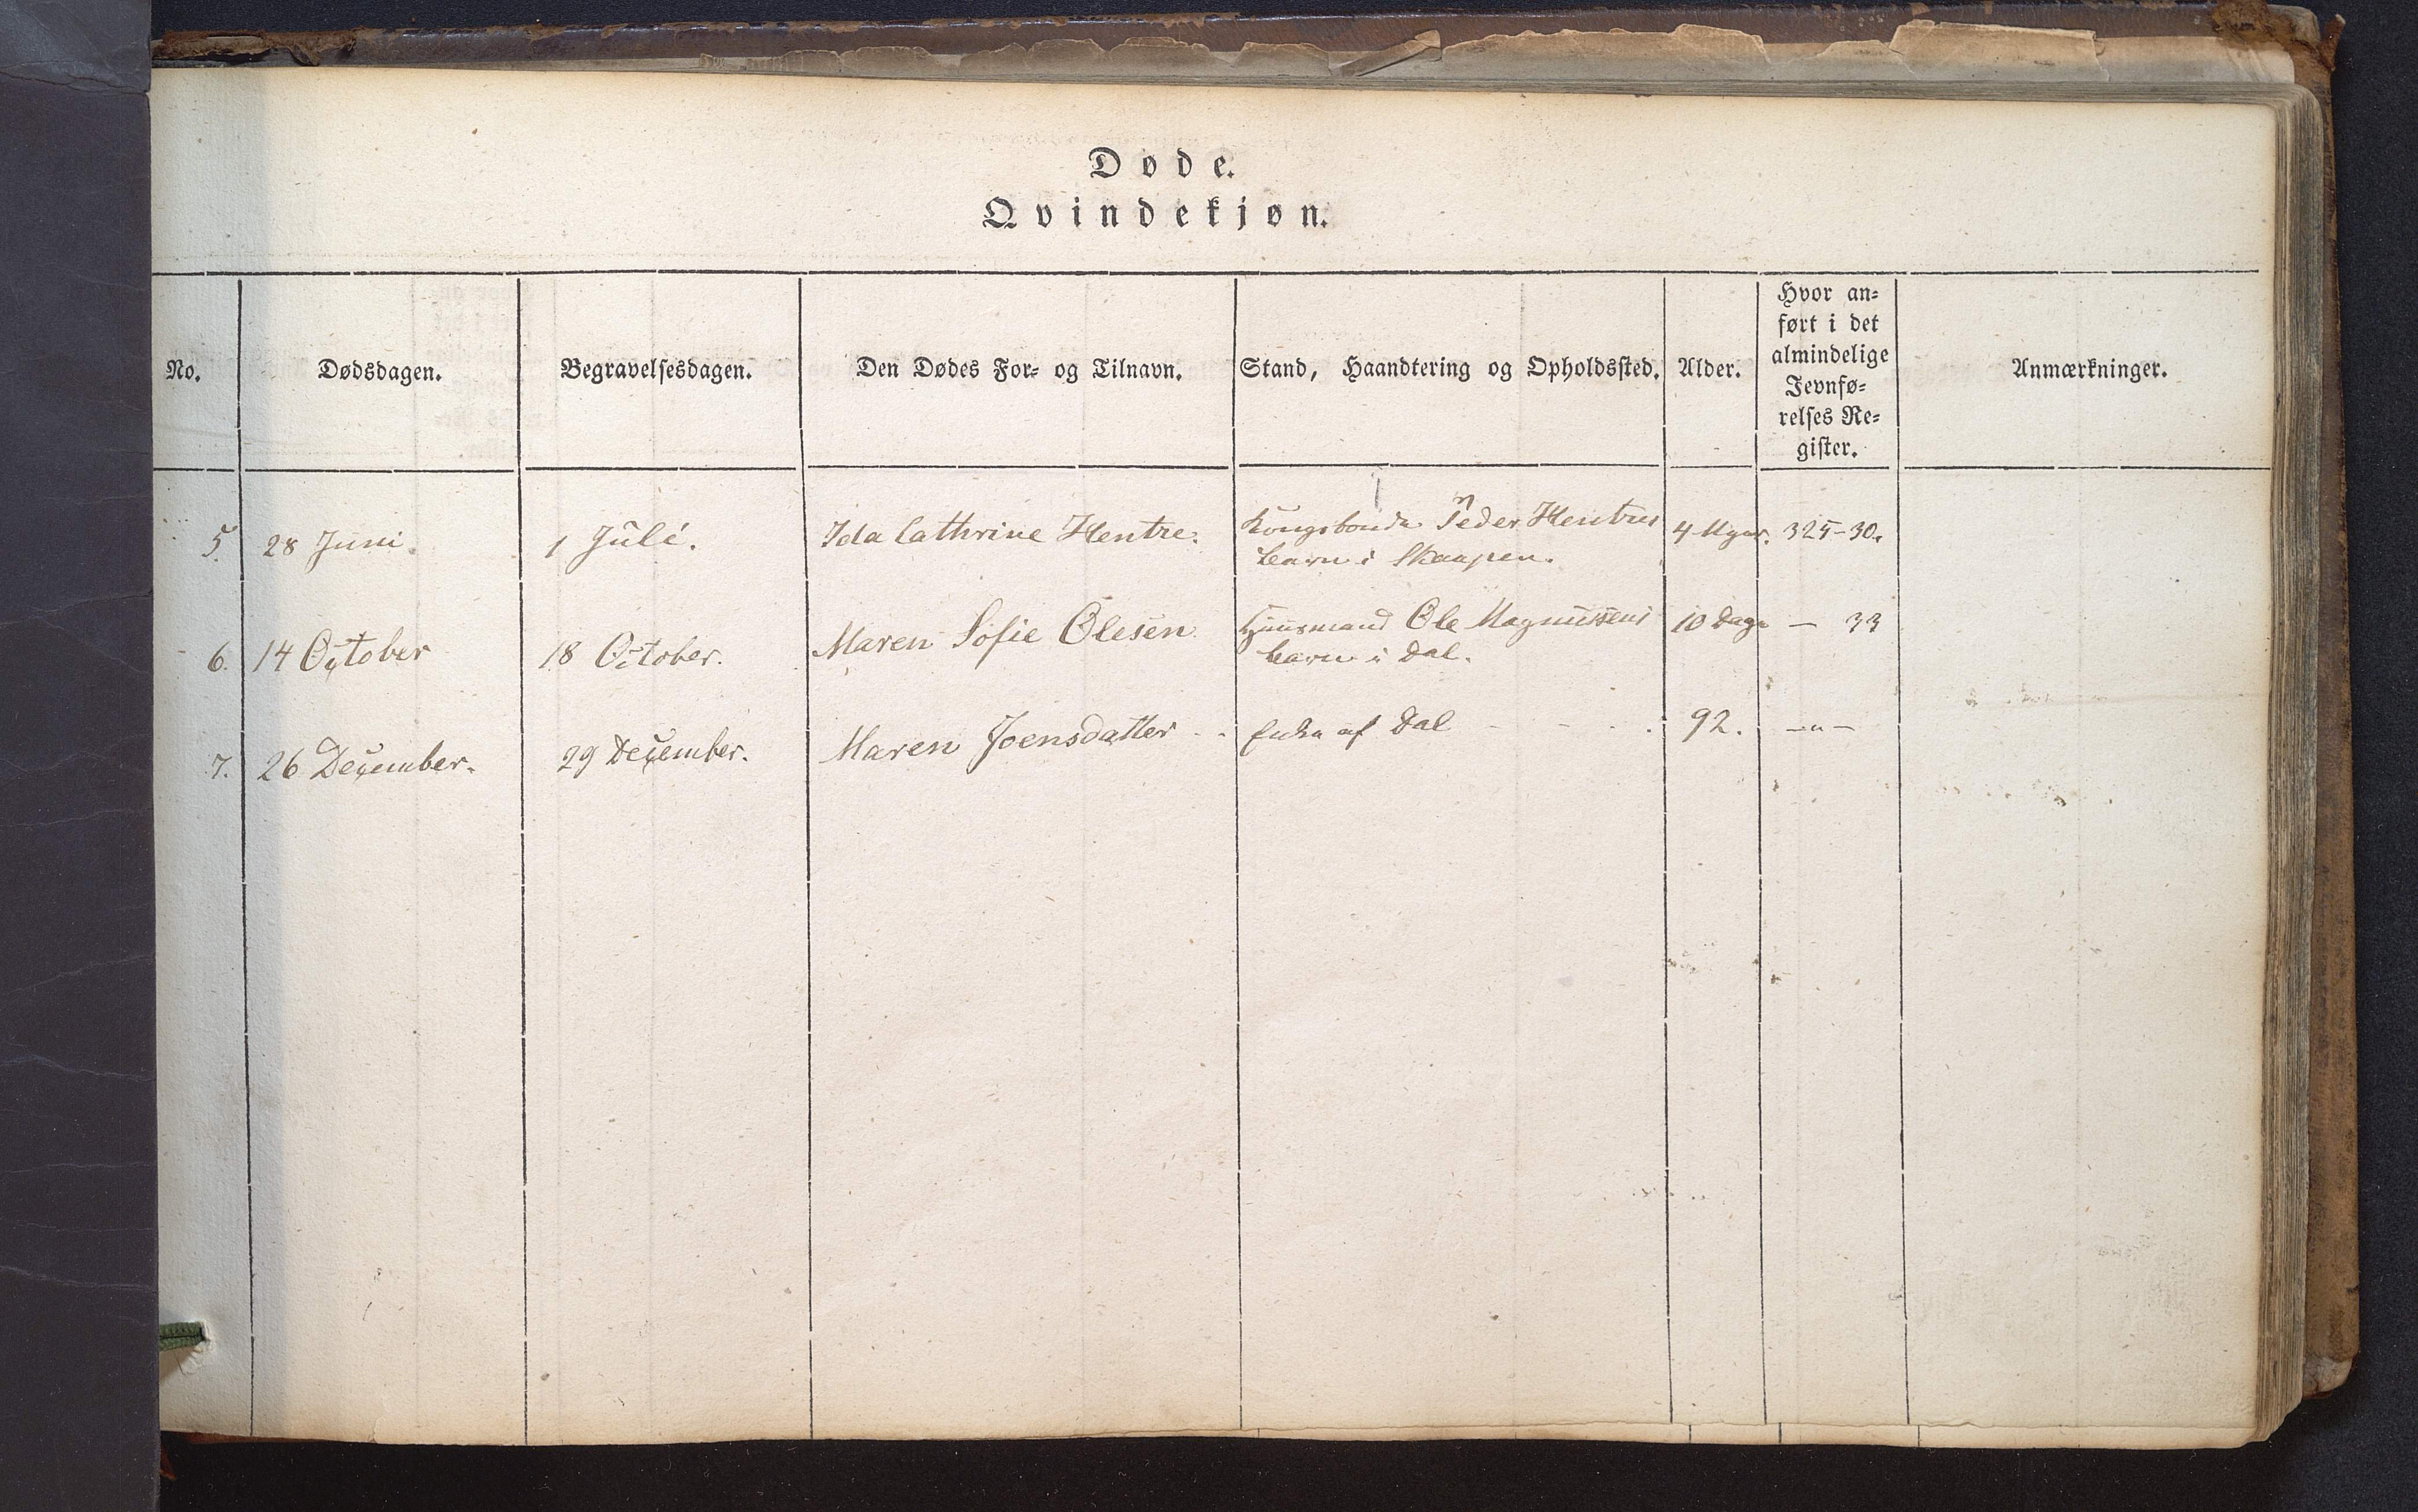 Døde.
Qvindekjøn.
No. Dødsdagen. Begravelsesdagen. Den Dødes For- og Tilnavn. Stand, Haandtering og Opholdssted. Alder. Hvor an=
ført i det
almindelige
Jevnfø=
relses Re=
gister. Anmærkninger.
5. 28 Juni. 1 Juli. Ida Cathrine Hentze. Kongsbonde Peder Hentzes 4 325-30.
barn i Skaapen.
6. 14 October 18 October. Maren Sofie Olesen Huusmand Ole Magnussens 10 Dage — 33
barn i Dal.
7. 26 December. 29 December. Maren Joensdatter - . Enke af Dal - - . 92. —"—